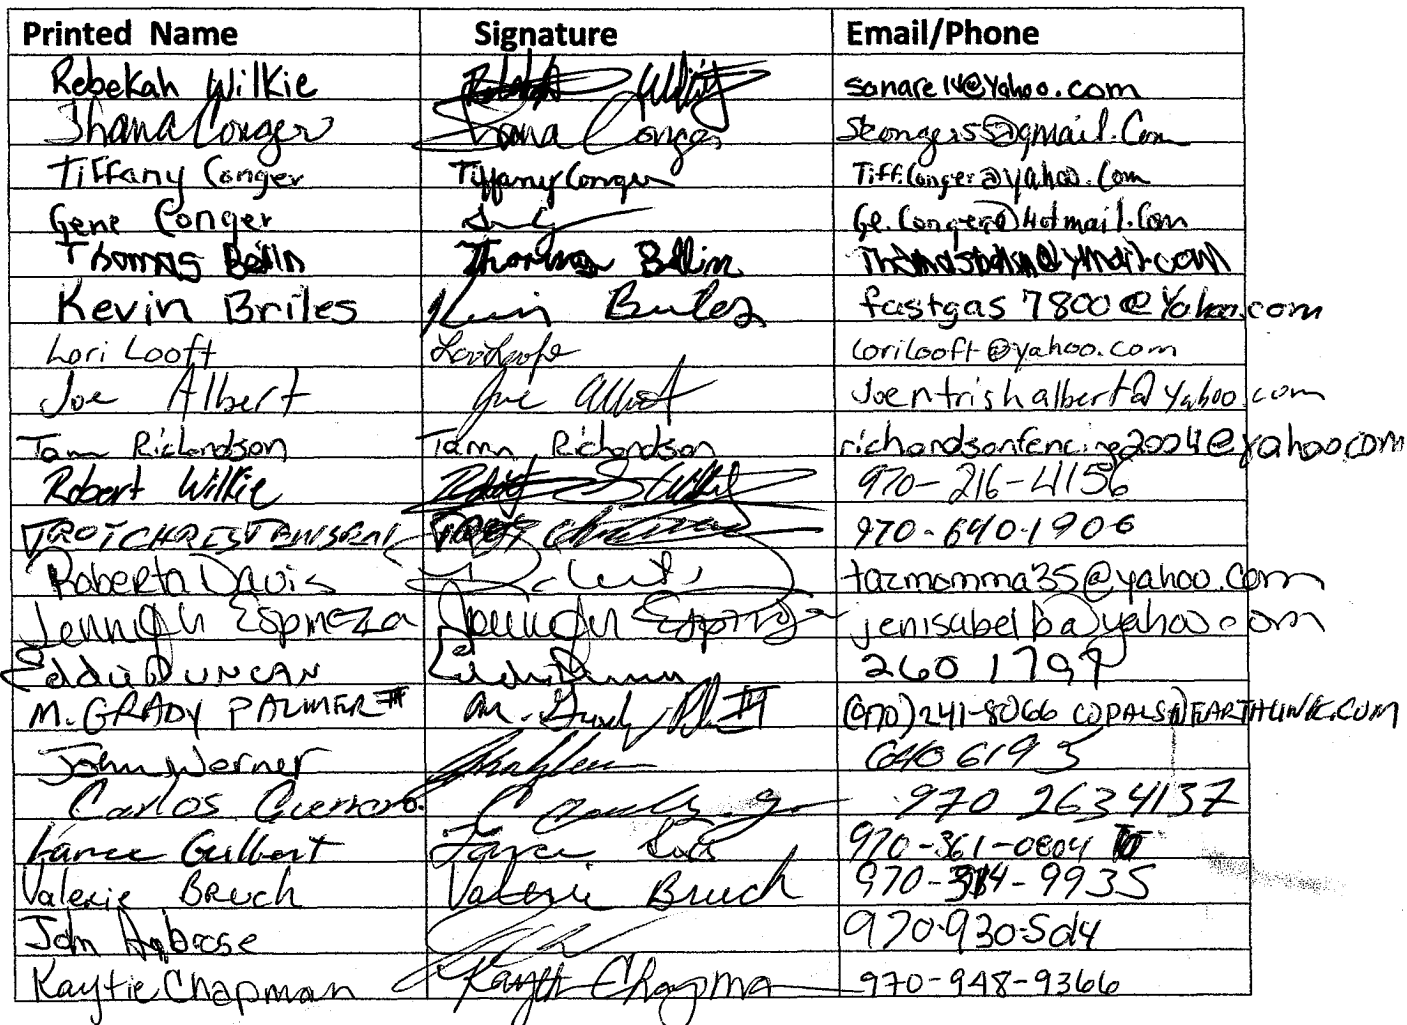 Printed Name Signature Email/Phone
Rebekah Wilkie sanare14@yahoo.com
Shana Conger Shana Conger skconger55@gmail.com
Tiffany Conger Tiffany Conger Tiff.Conger@yahoo.com
Gene Conger Ge.Conger@Hotmail.com
Thomas Belin Thomas Bellin
Kevin Briles Kevin Briles fastgas7800@Yahoo.com
Lori Looft Lori Looft lorilooft@yahoo.com
Joe Albert Joe Albert Joentrishalbert@Yahoo.com
Tam Richardson Tamn Richardson richardsonfencing2004@yahoo.com
Robert Wilkie 970-216-4156
970-640-1906
Roberta Davis tazmomma35@yahoo.com
Jennifer Espinoza Jennifer Espinoza jenisabelb@yahoo.com
Eddie DUNCAN Eddie Duncan 260 1797
M. GRADY PALMER III M. Grady III (970)241-8066 COPALS@EARTHLINK.COM
John Werner 640 6193
Carlos Guerrero 970 263 4137
Lance Gulbert Lance 970-361-0804
Valerie Bruch Valerie Bruch 970-314-9935
John Ambrose 970-930-5014
Kaytie Chapman Kaytie Chapman 970-948-9366